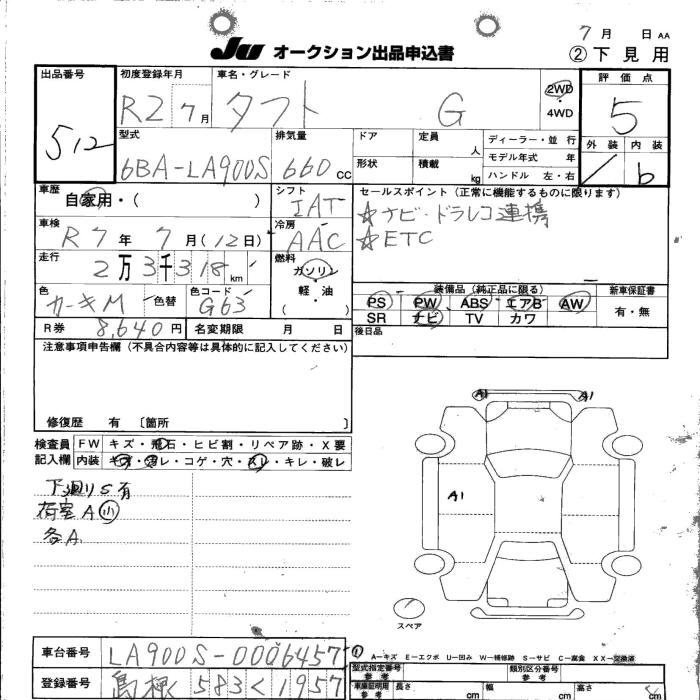 7月 日 AA
JU オークション出品申込書 ②下見用
出品番号 512
初度登録年月 R2 7月
車名・グレード タフト G
2WD・4WD
評価点 5
外装 内装 b
型式 6BA-LA900S
排気量 660 cc
ドア 定員 人
形状 積載 kg
ディーラー・並行
モデル年式 年
ハンドル 左・右
車歴 自家用・( )
シフト IAT
車検 R7年7月(12日)
冷房 AAC
走行 2万3千318km
燃料 ガソリン・軽・油
色 カーキM 色替
色コード G63
R券 8,640円
名変期限 月 日
セールスポイント(正常に機能するものに限ります)
☆ナビ・ドラレコ連携
☆ETC
装備品(純正品に限る)
PS PW ABS エアB AW
SR ナビ TV カワ
新車保証書 有・無
後日品
注意事項申告欄(不具合内容等は具体的に記入してください)
修復歴 有 〔箇所 〕
検査員記入欄
FW キズ・飛石・ヒビ割・リペア跡・X要
内装 キズ・汚レ・コゲ・穴・スレ・キレ・破レ
下廻りS有
荷室A小
各A
A1 A1
A1
スペア
車台番号 LA900S-0006457
登録番号 島根 583 く 1957
A－キズ E－エクボ U－凹み W－補修跡 S－サビ C－腐食 XX－交換済
型式指定番号 参考
類別区分番号 参考
車庫証明用 参考
長さ cm 幅 cm 高さ cm